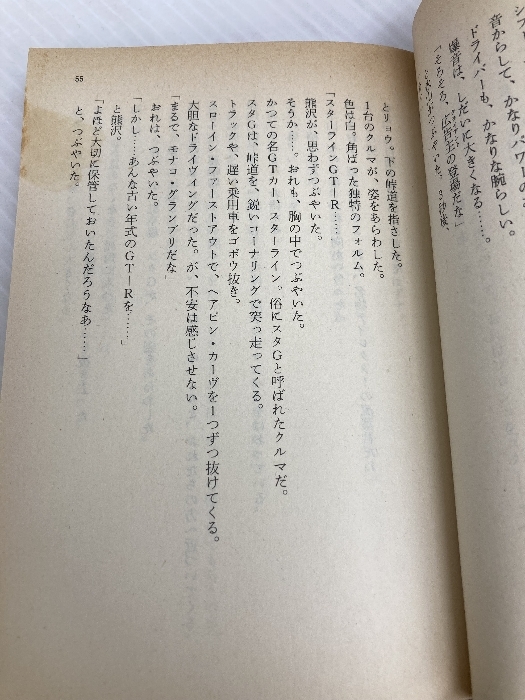 音からして、かなりパワーのあ
ドライバーも、かなりな腕らしい。
爆音は、しだいに大きくなる……。
「そろそろ、広尾先生の登場だな」
とリョウ。下の峠道を指さした。
1台のクルマが、姿をあらわした。
色は白。角ばった独特のフォルム。
「スターラインGT－R……」
熊沢が、思わずつぶやいた。
そうか……。おれも、胸の中でつぶやいた。
かつての名GTカー、スターライン。俗にスタGと呼ばれたクルマだ。
スタGは、峠道を、鋭いコーナリングで突っ走ってくる。
トラックや、遅い乗用車をゴボウ抜き。
スローイン・ファーストアウトで、ヘアピン・カーヴを1つずつ抜けてくる。
大胆なドライヴィングだった。が、不安は感じさせない。
「まるで、モナコ・グランプリだな」
おれは、つぶやいた。
「しかし……あんな古い年式のGT－Rを……」
と熊沢。
「よほど大切に保管しておいたんだろうなあ……」
と、つぶやいた。
55